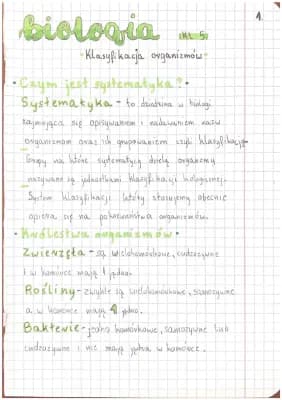 1.
biologia KL 5.
"Klasyfikacja organizmów"
• Czym jest systematyka? •
Systematyka - to dziedzina w biologi
zajmująca się opisywaniem i nadawaniem nazw
organizmom oraz ich grupowaniem czyli klasyfikacją.
Grupy na które systematycy dzielą organizmy
nazywane są jednostkami klasyfikacji biologicznej.
System klasyfikacji który stosujemy obecnie
opiera się na pokrewieństwie organizmów.
• Królestwa organizmów •
Zwierzęta - są wielokomórkowe, cudzożywne
i w komórce mają 1 jądro.
Rośliny - zwykle są wielokomórkowe, samożywne
a w komórce mają 1 jądro.
Bakterie - jedno komórkowe, samożywne lub
cudzożywne i nie mają jądra w komórce.